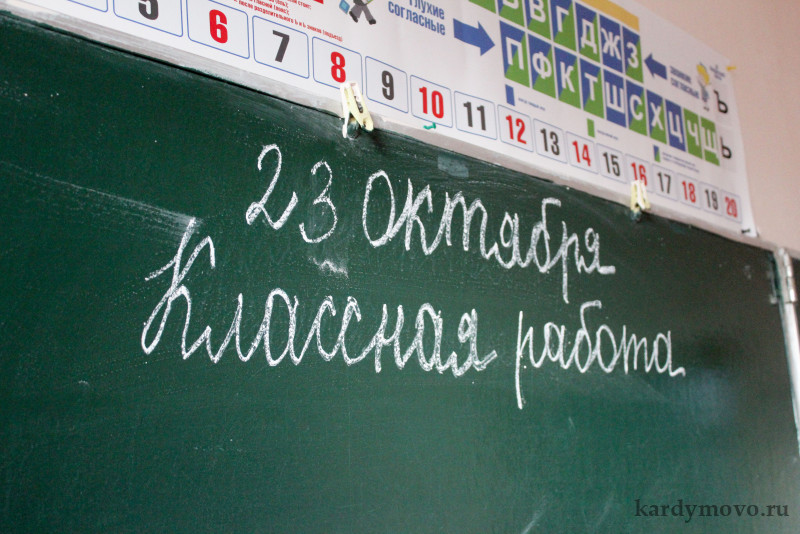 глухие
согласные
звонкие
согласные
В В Г Д Ж З
П Ф К Т Ш С Х Ц Ч Щ
Ъ
Ь
5 6 7 8 9 10 11 12 13 14 15 16 17 18 19 20
23 октября
Классная работа
kardymovo.ru